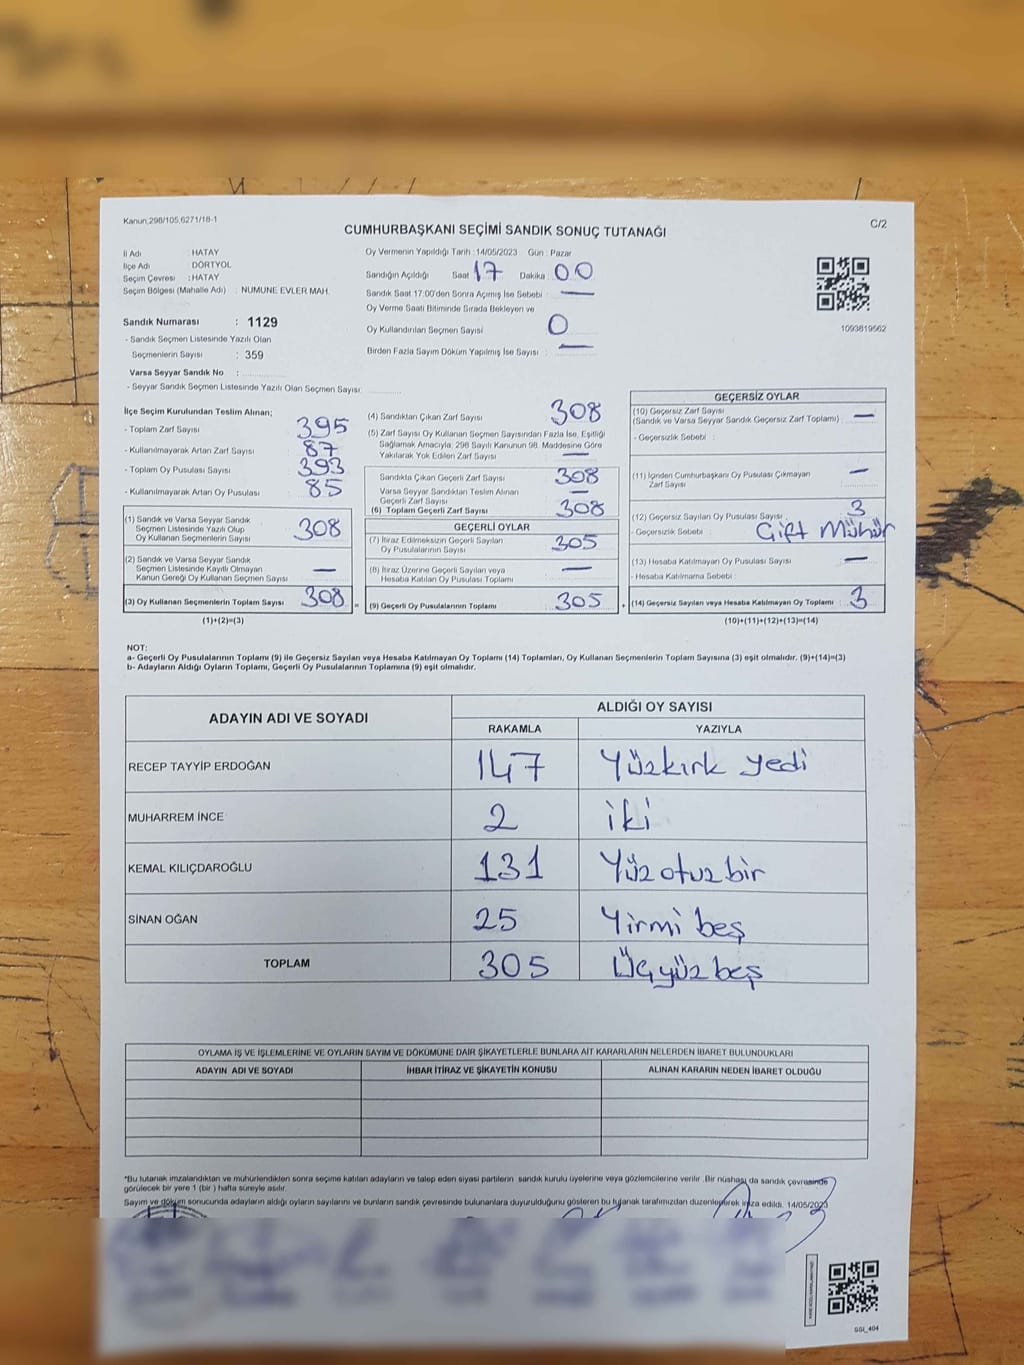 Kanun,298/105,6271/18-1
C/2
CUMHURBAŞKANI SEÇİMİ SANDIK SONUÇ TUTANAĞI
İl Adı : HATAY
İlçe Adı : DÖRTYOL
Seçim Çevresi : HATAY
Seçim Bölgesi (Mahalle Adı) : NUMUNE EVLER MAH.
Sandık Numarası : 1129
- Sandık Seçmen Listesinde Yazılı Olan
Seçmenlerin Sayısı : 359
Varsa Seyyar Sandık No :
- Seyyar Sandık Seçmen Listesinde Yazılı Olan Seçmen Sayısı:
Oy Vermenin Yapıldığı Tarih : 14/05/2023 Gün : Pazar
Sandığın Açıldığı Saat 17 Dakika : 00
Sandık Saat 17:00'den Sonra Açımış İse Sebebi : —
Oy Verme Saati Bitiminde Sırada Bekleyen ve
Oy Kullandırılan Seçmen Sayısı : 0
Birden Fazla Sayım Döküm Yapılmış İse Sayısı : —
1093819562
İlçe Seçim Kurulundan Teslim Alınan;
- Toplam Zarf Sayısı 395
- Kullanılmayarak Artan Zarf Sayısı 87
- Toplam Oy Pusulası Sayısı 393
- Kullanılmayarak Artan Oy Pusulası 85
(1) Sandık ve Varsa Seyyar Sandık
Seçmen Listesinde Yazılı Olup
Oy Kullanan Seçmenlerin Sayısı 308
(2) Sandık ve Varsa Seyyar Sandık
Seçmen Listesinde Kayıtlı Olmayan
Kanun Gereği Oy Kullanan Seçmen Sayısı —
(3) Oy Kullanan Seçmenlerin Toplam Sayısı 308 =
(1)+(2)=(3)
(4) Sandıktan Çıkan Zarf Sayısı 308
(5) Zarf Sayısı Oy Kullanan Seçmen Sayısından Fazla İse, Eşitliği
Sağlamak Amacıyla, 298 Sayılı Kanunun 98. Maddesine Göre
Yakılarak Yok Edilen Zarf Sayısı —
Sandıkta Çıkan Geçerli Zarf Sayısı 308
Varsa Seyyar Sandıktan Teslim Alınan
Geçerli Zarf Sayısı —
(6) Toplam Geçerli Zarf Sayısı 308
GEÇERLİ OYLAR
(7) İtiraz Edilmeksizin Geçerli Sayılan
Oy Pusulalarının Sayısı 305
(8) İtiraz Üzerine Geçerli Sayılan veya
Hesaba Katılan Oy Pusulası Toplamı —
(9) Geçerli Oy Pusulalarının Toplamı 305 +
GEÇERSİZ OYLAR
(10) Geçersiz Zarf Sayısı
(Sandık ve Varsa Seyyar Sandık Geçersiz Zarf Toplamı) : —
- Geçersizlik Sebebi :
(11) İçinden Cumhurbaşkanı Oy Pusulası Çıkmayan
Zarf Sayısı —
(12) Geçersiz Sayılan Oy Pusulası Sayısı : 3
- Geçersizlik Sebebi : Çift Mühür
(13) Hesaba Katılmayan Oy Pusulası Sayısı —
- Hesaba Katılmama Sebebi :
(14) Geçersiz Sayılan veya Hesaba Katılmayan Oy Toplamı 3
(10)+(11)+(12)+(13)=(14)
NOT:
a- Geçerli Oy Pusulalarının Toplamı (9) ile Geçersiz Sayılan veya Hesaba Katılmayan Oy Toplamı (14) Toplamları, Oy Kullanan Seçmenlerin Toplam Sayısına (3) eşit olmalıdır. (9)+(14)=(3)
b- Adayların Aldığı Oyların Toplamı, Geçerli Oy Pusulalarının Toplamına (9) eşit olmalıdır.
ADAYIN ADI VE SOYADI
ALDIĞI OY SAYISI
RAKAMLA YAZIYLA
RECEP TAYYİP ERDOĞAN 147 Yüzkırk yedi
MUHARREM İNCE 2 iki
KEMAL KILIÇDAROĞLU 131 Yüz otuz bir
SİNAN OĞAN 25 Yirmi beş
TOPLAM 305 Üçyüz beş
OYLAMA İŞ VE İŞLEMLERİNE VE OYLARIN SAYIM VE DÖKÜMÜNE DAİR ŞİKAYETLERLE BUNLARA AİT KARARLARIN NELERDEN İBARET BULUNDUKLARI
ADAYIN ADI VE SOYADI İHBAR İTİRAZ VE ŞİKAYETİN KONUSU ALINAN KARARIN NEDEN İBARET OLDUĞU
*Bu tutanak imzalandıktan ve mühürlendikten sonra seçime katılan adayların ve talep eden siyasi partilerin sandık kurulu üyelerine veya gözlemcilerine verilir. Bir nüshası da sandık çevresinde
görülecek bir yere 1 (bir ) hafta süreyle asılır.
Sayım ve döküm sonucunda adayların aldığı oyların sayılarını ve bunların sandık çevresinde bulunanlara duyurulduğunu gösteren bu tutanak tarafımızdan düzenlenerek imza edildi. 14/05/2023
SSI_404